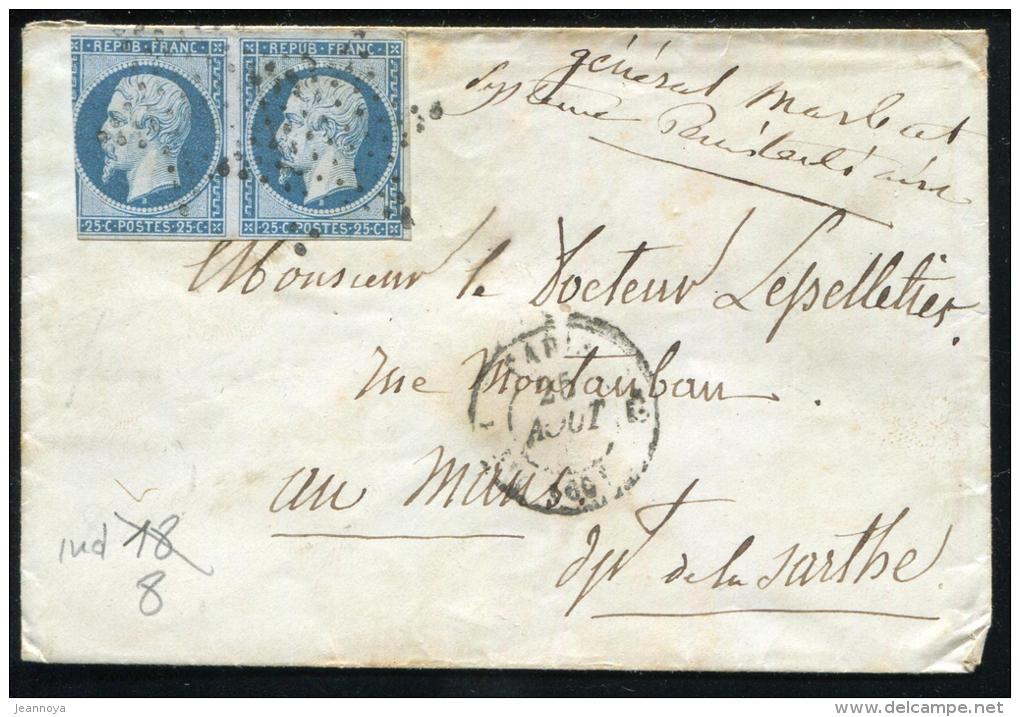 REPUB·FRANC· REPUB·FRANC·
·25·C·POSTES·25·C· ·25·C·POSTES·25·C·
général Marbat
Système Pénitentiaire
Monsieur le Docteur Lepelletier.
rue Montauban.
au Mans.
dpt de la Sarthe.
PARIS
26
AOUT
E
ind 18
8
jeannoya
delcampe.net